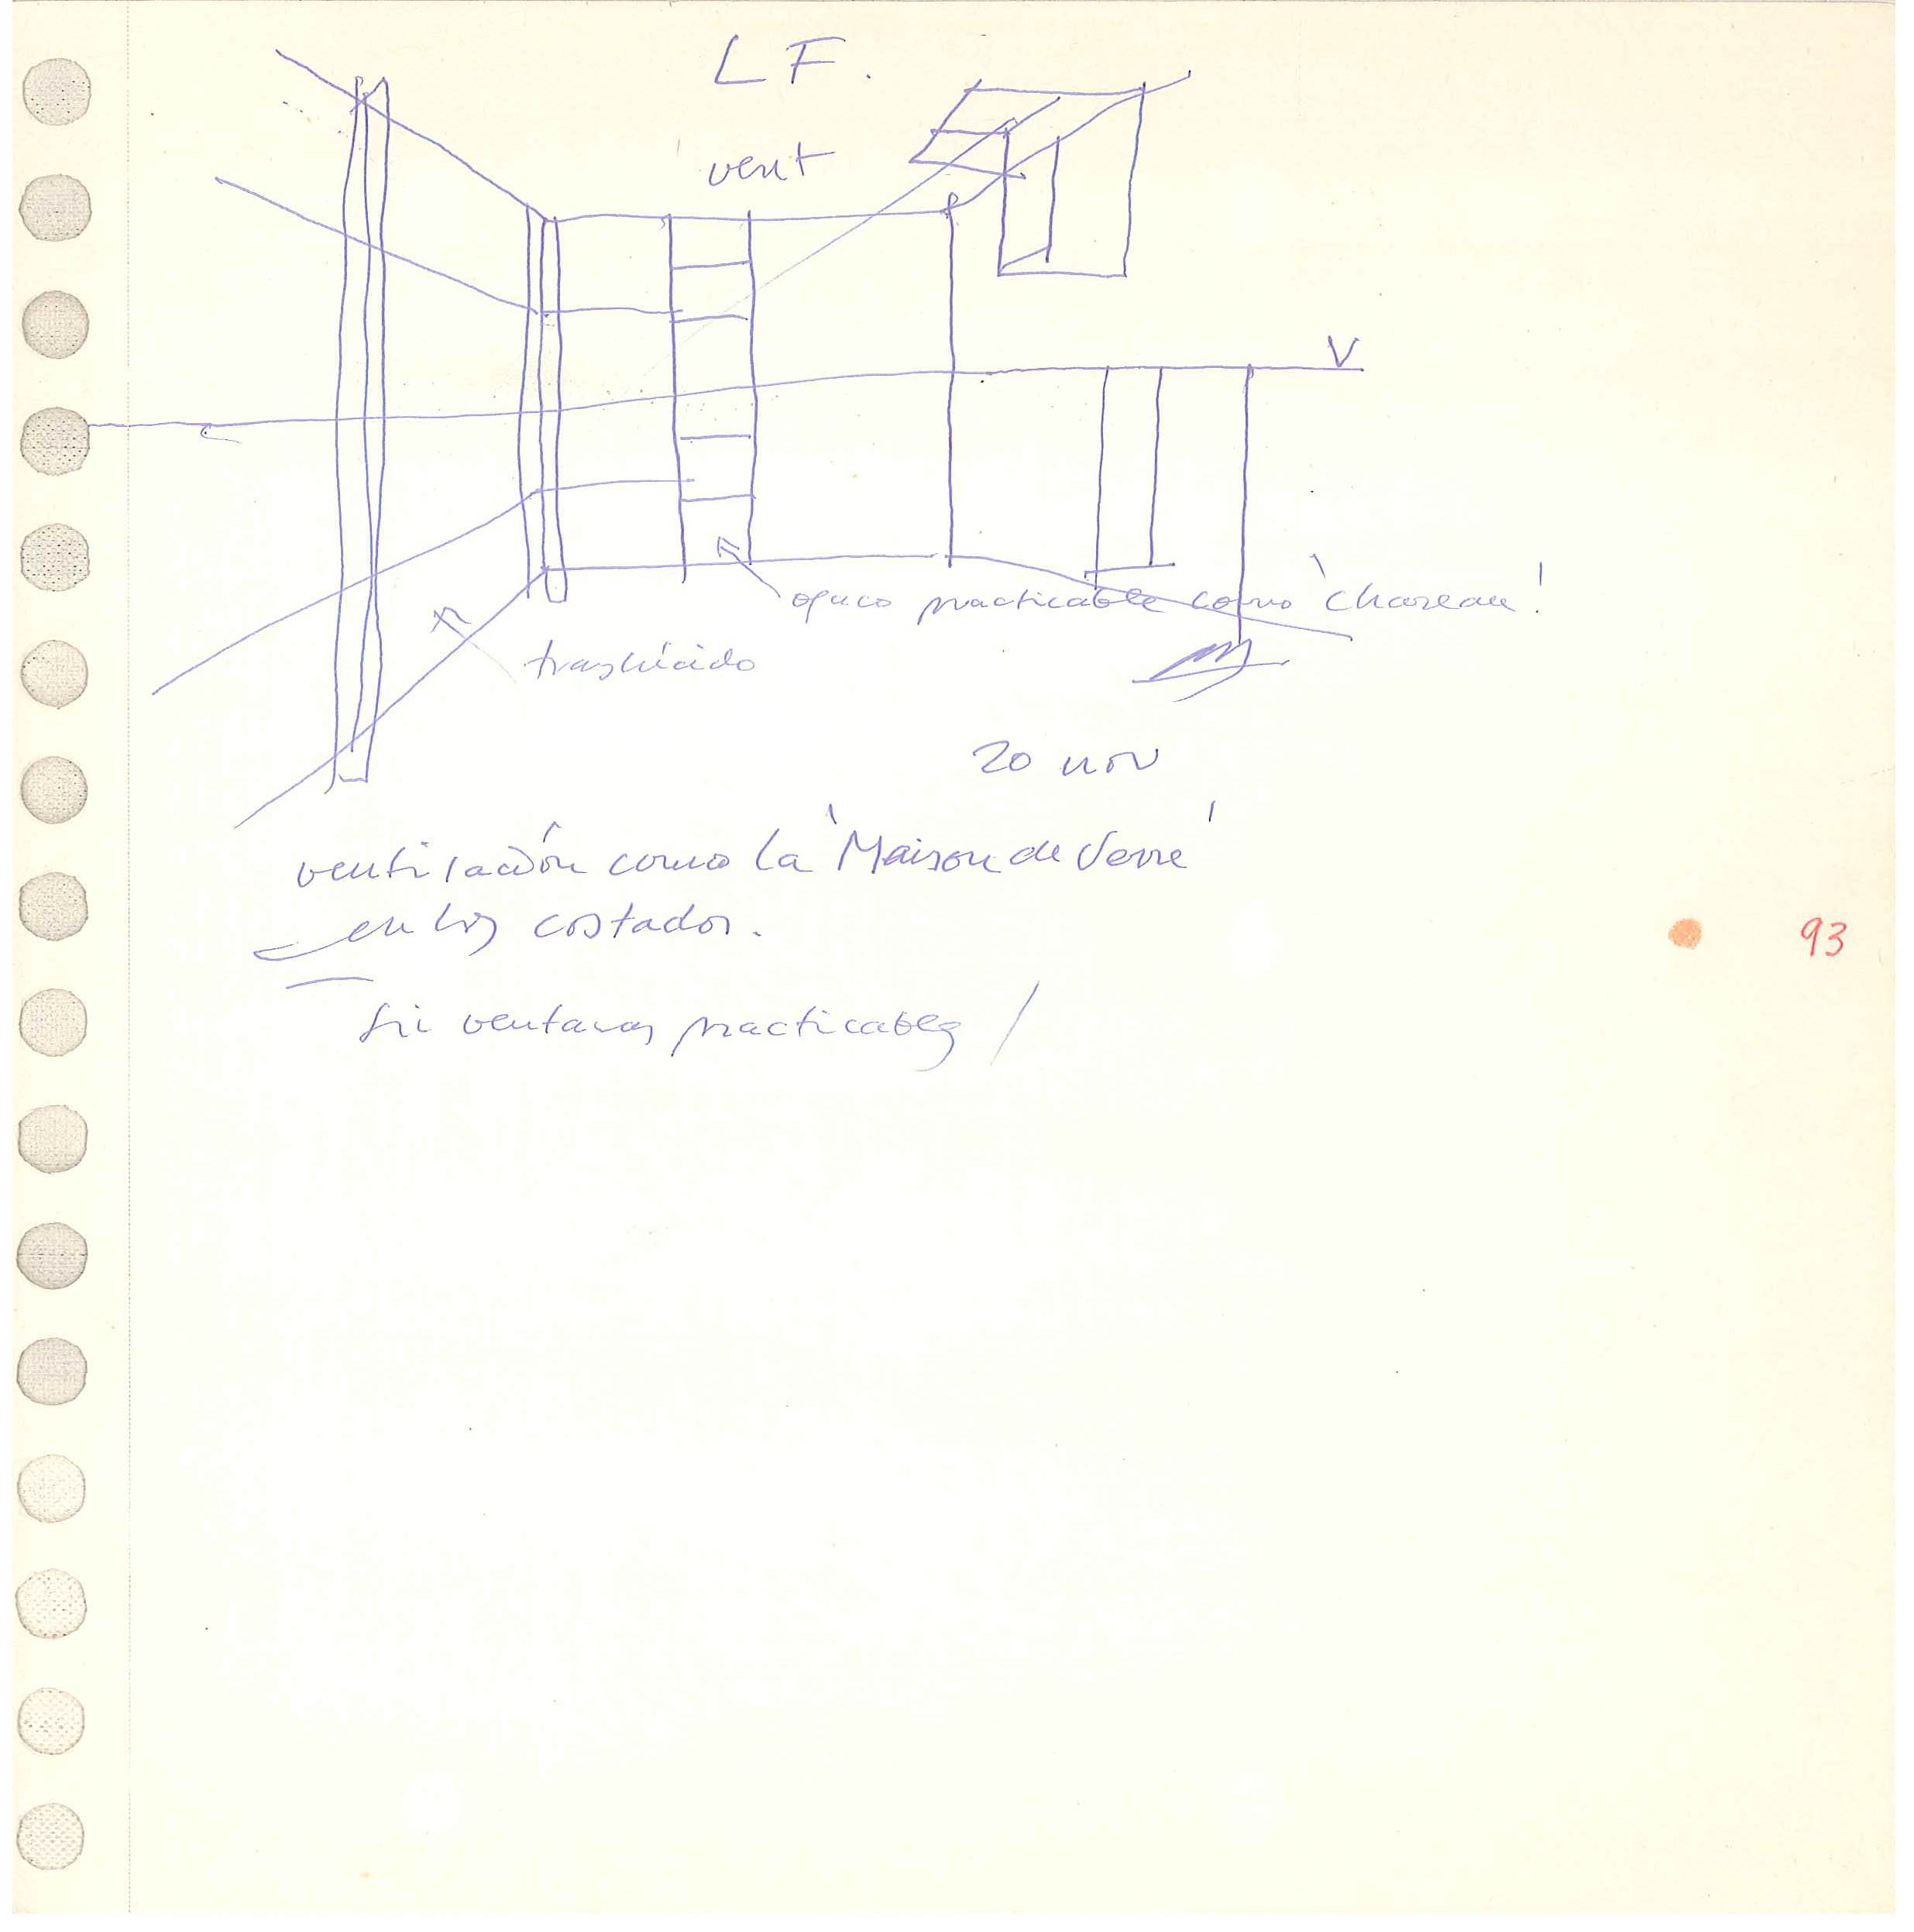 L F.
vent
V
opaco practicable como 'Chareau'
traslúcido
20 nov
ventilación como la 'Maison de Verre'
en los costados.
Sin ventanas practicables /
93